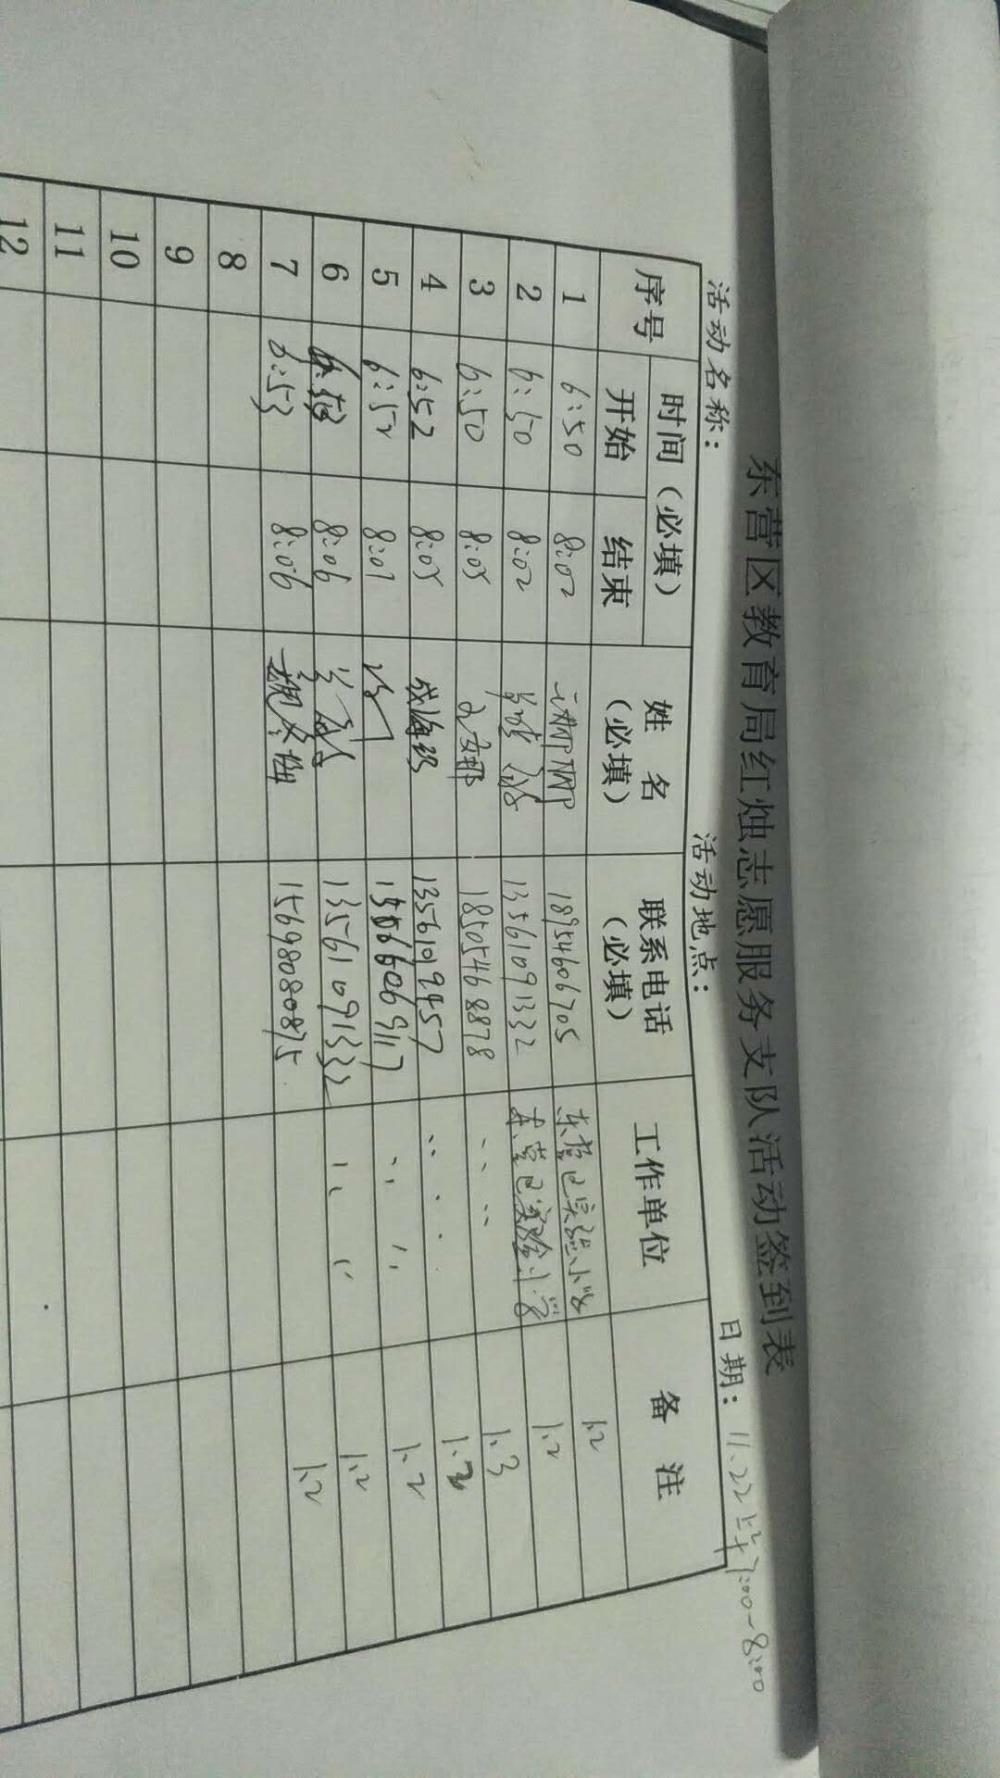 东营区教育局红烛志愿服务支队活动签到表
活动名称： 活动地点： 日期：11.22 上午7:00-8:00
序号 时间（必填） 姓名（必填） 联系电话（必填） 工作单位 备注
开始 结束
1 6:50 8:02 18954606705 东营区实验小学 1.2
2 6:50 8:02 13561091332 东营区实验小学 1.2
3 6:50 8:05 18505468878 〃 〃 1.3
4 6:52 8:05 13561019457 〃 〃 1.2
5 6:52 8:01 〃 〃 1.2
6 8:06 13561091332 〃 〃 1.2
7 6:53 8:06 魏冬梅 15698080875 1.2
8
9
10
11
12